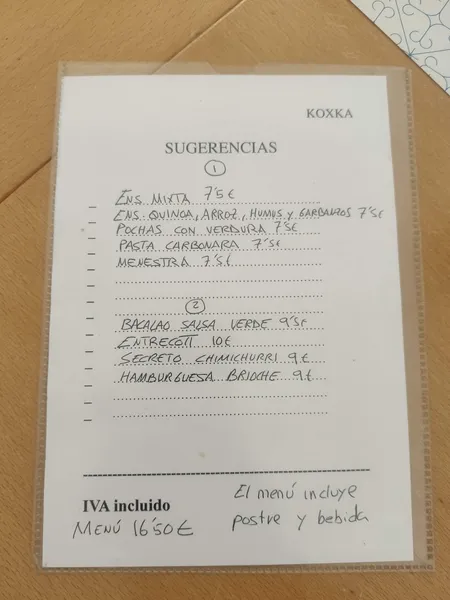 KOXKA
SUGERENCIAS
1
ENS. MIXTA 7'5€
ENS. QUINOA, ARROZ, HUMUS y GARBANZOS 7'5€
POCHAS CON VERDURA 7'5€
PASTA CARBONARA 7'5€
MENESTRA 7'5€
2
BACALAO SALSA VERDE 9'5€
ENTRECOTT 10€
SECRETO CHIMICHURRI 9€
HAMBURGUESA BRIOCHE 9€
IVA incluido
MENÚ 16'50€
El menú incluye
postre y bebida